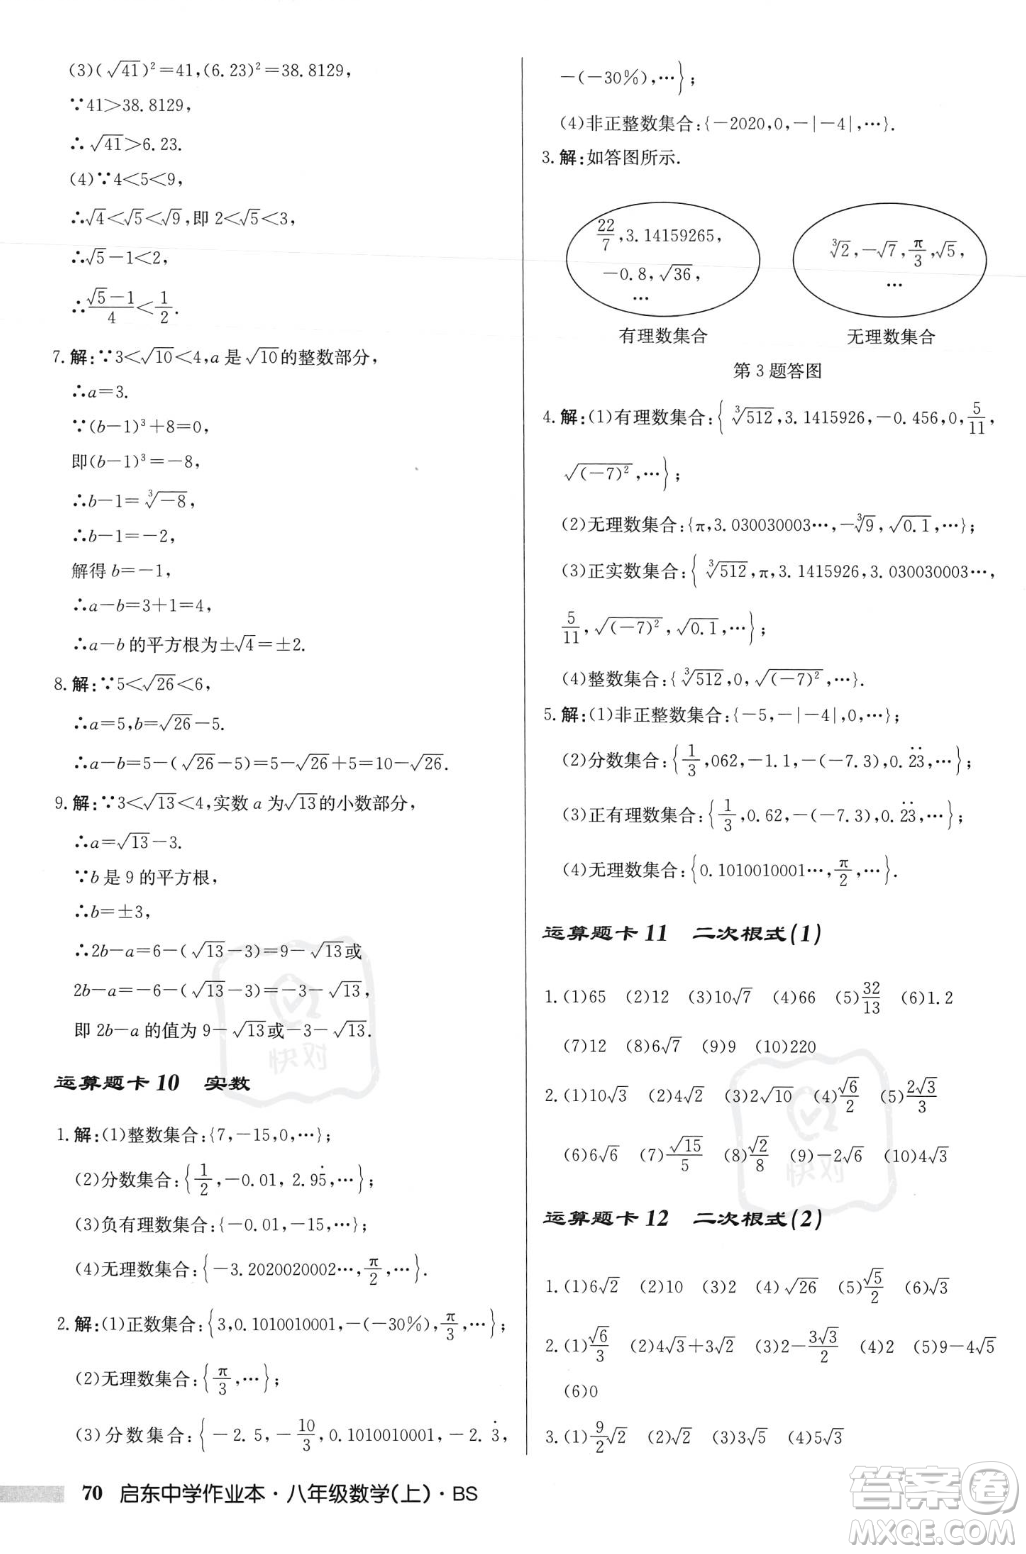 (3)(√41)²=41,(6.23)²=38.8129,
∵41>38.8129,
∴√41>6.23.
(4)∵4<5<9,
∴√4<√5<√9,即 2<√5<3,
∴√5-1<2,
∴(√5-1)/4<1/2.
7.解:∵3<√10<4,a 是√10的整数部分,
∴a=3.
∵(b-1)³+8=0,
即(b-1)³=-8,
∴b-1=∛-8,
∴b-1=-2,
解得 b=-1,
∴a-b=3+1=4,
∴a-b 的平方根为±√4=±2.
8.解:∵5<√26<6,
∴a=5,b=√26-5.
∴a-b=5-(√26-5)=5-√26+5=10-√26.
9.解:∵3<√13<4,实数 a 为√13的小数部分,
∴a=√13-3.
∵b 是 9 的平方根,
∴b=±3,
∴2b-a=6-(√13-3)=9-√13或
2b-a=-6-(√13-3)=-3-√13,
即 2b-a 的值为 9-√13或-3-√13.
运算题卡 10 实数
1.解:(1)整数集合:{7,-15,0,…};
(2)分数集合:{1/2,-0.01, 2.95̇,…};
(3)负有理数集合:{-0.01,-15,…};
(4)无理数集合:{-3.2020020002…,π/2,…}.
2.解:(1)正数集合:{3,0.1010010001,-(-30%),π/3,…};
(2)无理数集合:{π/3,…};
(3)分数集合:{-2.5,-10/3,0.1010010001,-2.3̇,
-(-30%),…};
(4)非正整数集合:{-2020,0,-|-4|,…}.
3.解:如答图所示.
22/7,3.14159265,
-0.8,√36,
…
∛2,-√7,π/3,√5,
…
有理数集合 无理数集合
第 3 题答图
4.解:(1)有理数集合:{∛512,3.1415926,-0.456,0,5/11,
√(-7)²,…};
(2)无理数集合:{π,3.030030003…,-∛9,√0.1,…};
(3)正实数集合:{∛512,π,3.1415926,3.030030003…,
5/11,√(-7)²,√0.1,…};
(4)整数集合:{∛512,0,√(-7)²,…}.
5.解:(1)非正整数集合:{-5,-|-4|,0,…};
(2)分数集合:{1/3,062,-1.3,-(-7.3),0.2̇3̇,…};
(3)正有理数集合:{1/3,0.62,-(-7.3),0.2̇3̇,…};
(4)无理数集合:{0.1010010001…,π/2,…}.
运算题卡 11 二次根式(1)
1.(1)65 (2)12 (3)10√7 (4)66 (5)32/13 (6)1.2
(7)12 (8)6√7 (9)9 (10)220
2.(1)10√3 (2)4√3 (3)2√10 (4)√6/2 (5)2√3/3
(6)6√5 (7)√15/5 (8)√2/8 (9)-2√6 (10)4√3
运算题卡 12 二次根式(2)
1.(1)6√2 (2)10 (3)2 (4)√26 (5)√5/2 (6)√3
2.(1)√6/3 (2)4√3+3√2 (3)2-3√3/2 (4)2 (5)9-4√5
(6)0
3.(1)9/2√2 (2)-4√3
70 启东中学作业本·八年级数学(上)·BS
快对
快对
答案圈
MXQE.COM